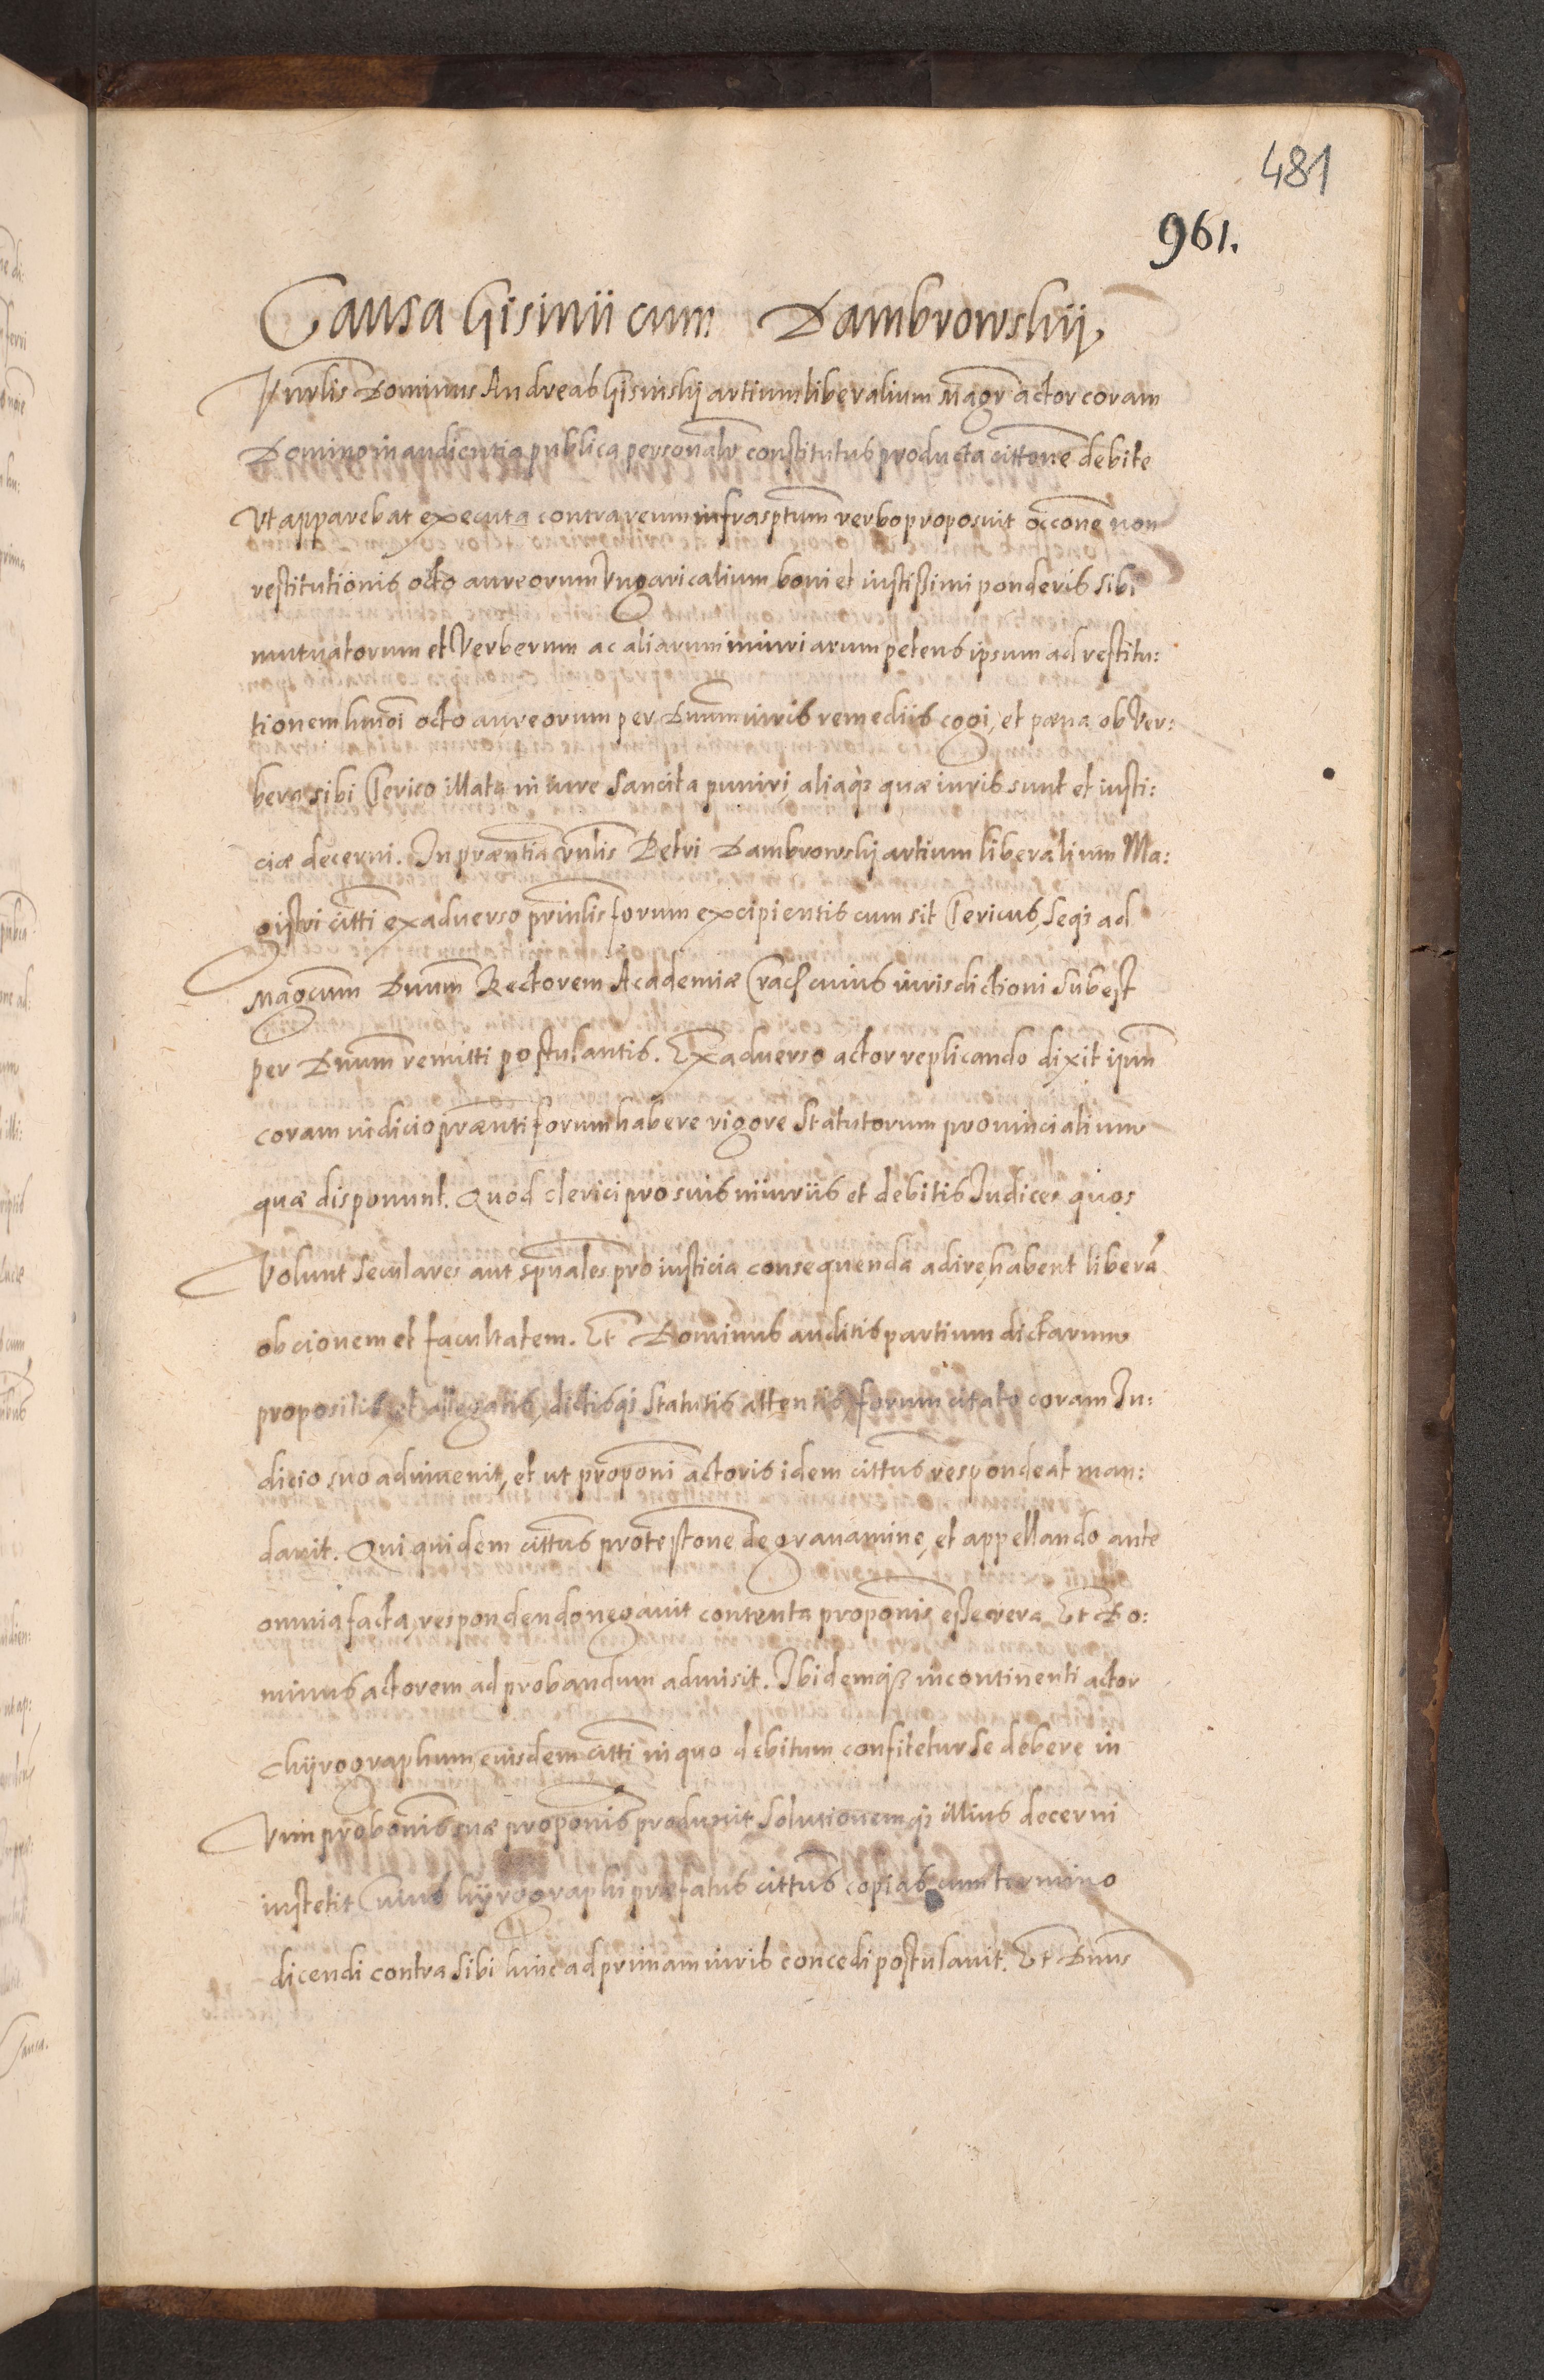 481
961.
Causa Gisinii cum Dambrowskij
Vnrlis Dominus Andreas Gisinskij artium liberalium Magr actor coram
Domino in audientia publica personalr constitutus producta cittone debite
Vt apparebat executa contra reum infrasptum verbo proposuit occone non
restitutionis octo aureorum Vngaricalium boni et iustissimi ponderis sibi
mutuatorum et Verberum ac aliarum iniuriarum petens ipsum ad restitu:
tionem hmoi octo aureorum per Dnum iuris remediis cogi, et pæna ob Ver:
bera sibi Clerico illata in iure sancita puniri, aliaqȝ quæ iuris sunt et iusti:
ciæ decerni. In præntia vnlis Petri Dambrowskij artium liberalium Ma:
gistri citti ex aduerso prinlis forum excipientis cum sit Clericus, seqȝ ad
Magcum Dnum Rectorem Academiæ Crac cuius iurisdictioni subest
per Dnum remitti postulantis. Ex aduerso actor replicando dixit ipm
coram iudicio præunti forum habere vigore Statutorum prouincialium
quæ disponunt. Quod clerici pro suis iniuriis et debitis Iudices quos
Volunt seculares aut spuales pro iusticia consequenda adire, habent liberã
obcionem et facultatem. Et Dominus auditis partium dictarum
propositis et allegatis, dictisqȝ statutis attentis, forum citato coram Iu:
dicio suo adinuenit, et ut proponi actoris idem cittus respondeat man:
dauit. Qui quidem cittus protestone de grauamine, et appellando ante
omnia facta, respondendo negauit contenta proponis esse vera. Et Do:
minus actorem ad probandum admisit. Ibidemqȝ incontinenti actor
chyrographum eiusdem citti in quo debitum confitetur se debere in
Vim probonis suæ proponis produxit solutionemqȝ illius decerni
institit Cuius hyrographi præfatus cittus copias cum termino
dicendi contra sibi hinc ad primam iuris concedi postulauit. Et Dnus